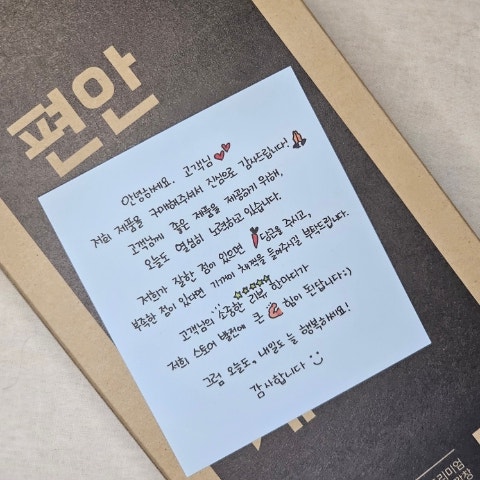 편안
안녕하세요. 고객님
저희 제품을 구매해주셔서 진심으로 감사드립니다!
고객님께 좋은 제품을 제공하기 위해,
오늘도 열심히 노력하고 있습니다.
저희가 잘한 점이 있으면 당근을 주시고,
부족한 점이 있다면 기꺼이 채찍을 들어주시길 부탁드립니다.
고객님의 소중한 리뷰 한마디가
저희 스토어 발전에 큰 힘이 된답니다:)
그럼 오늘도, 내일도 늘 행복하세요!
감사합니다
리미엄